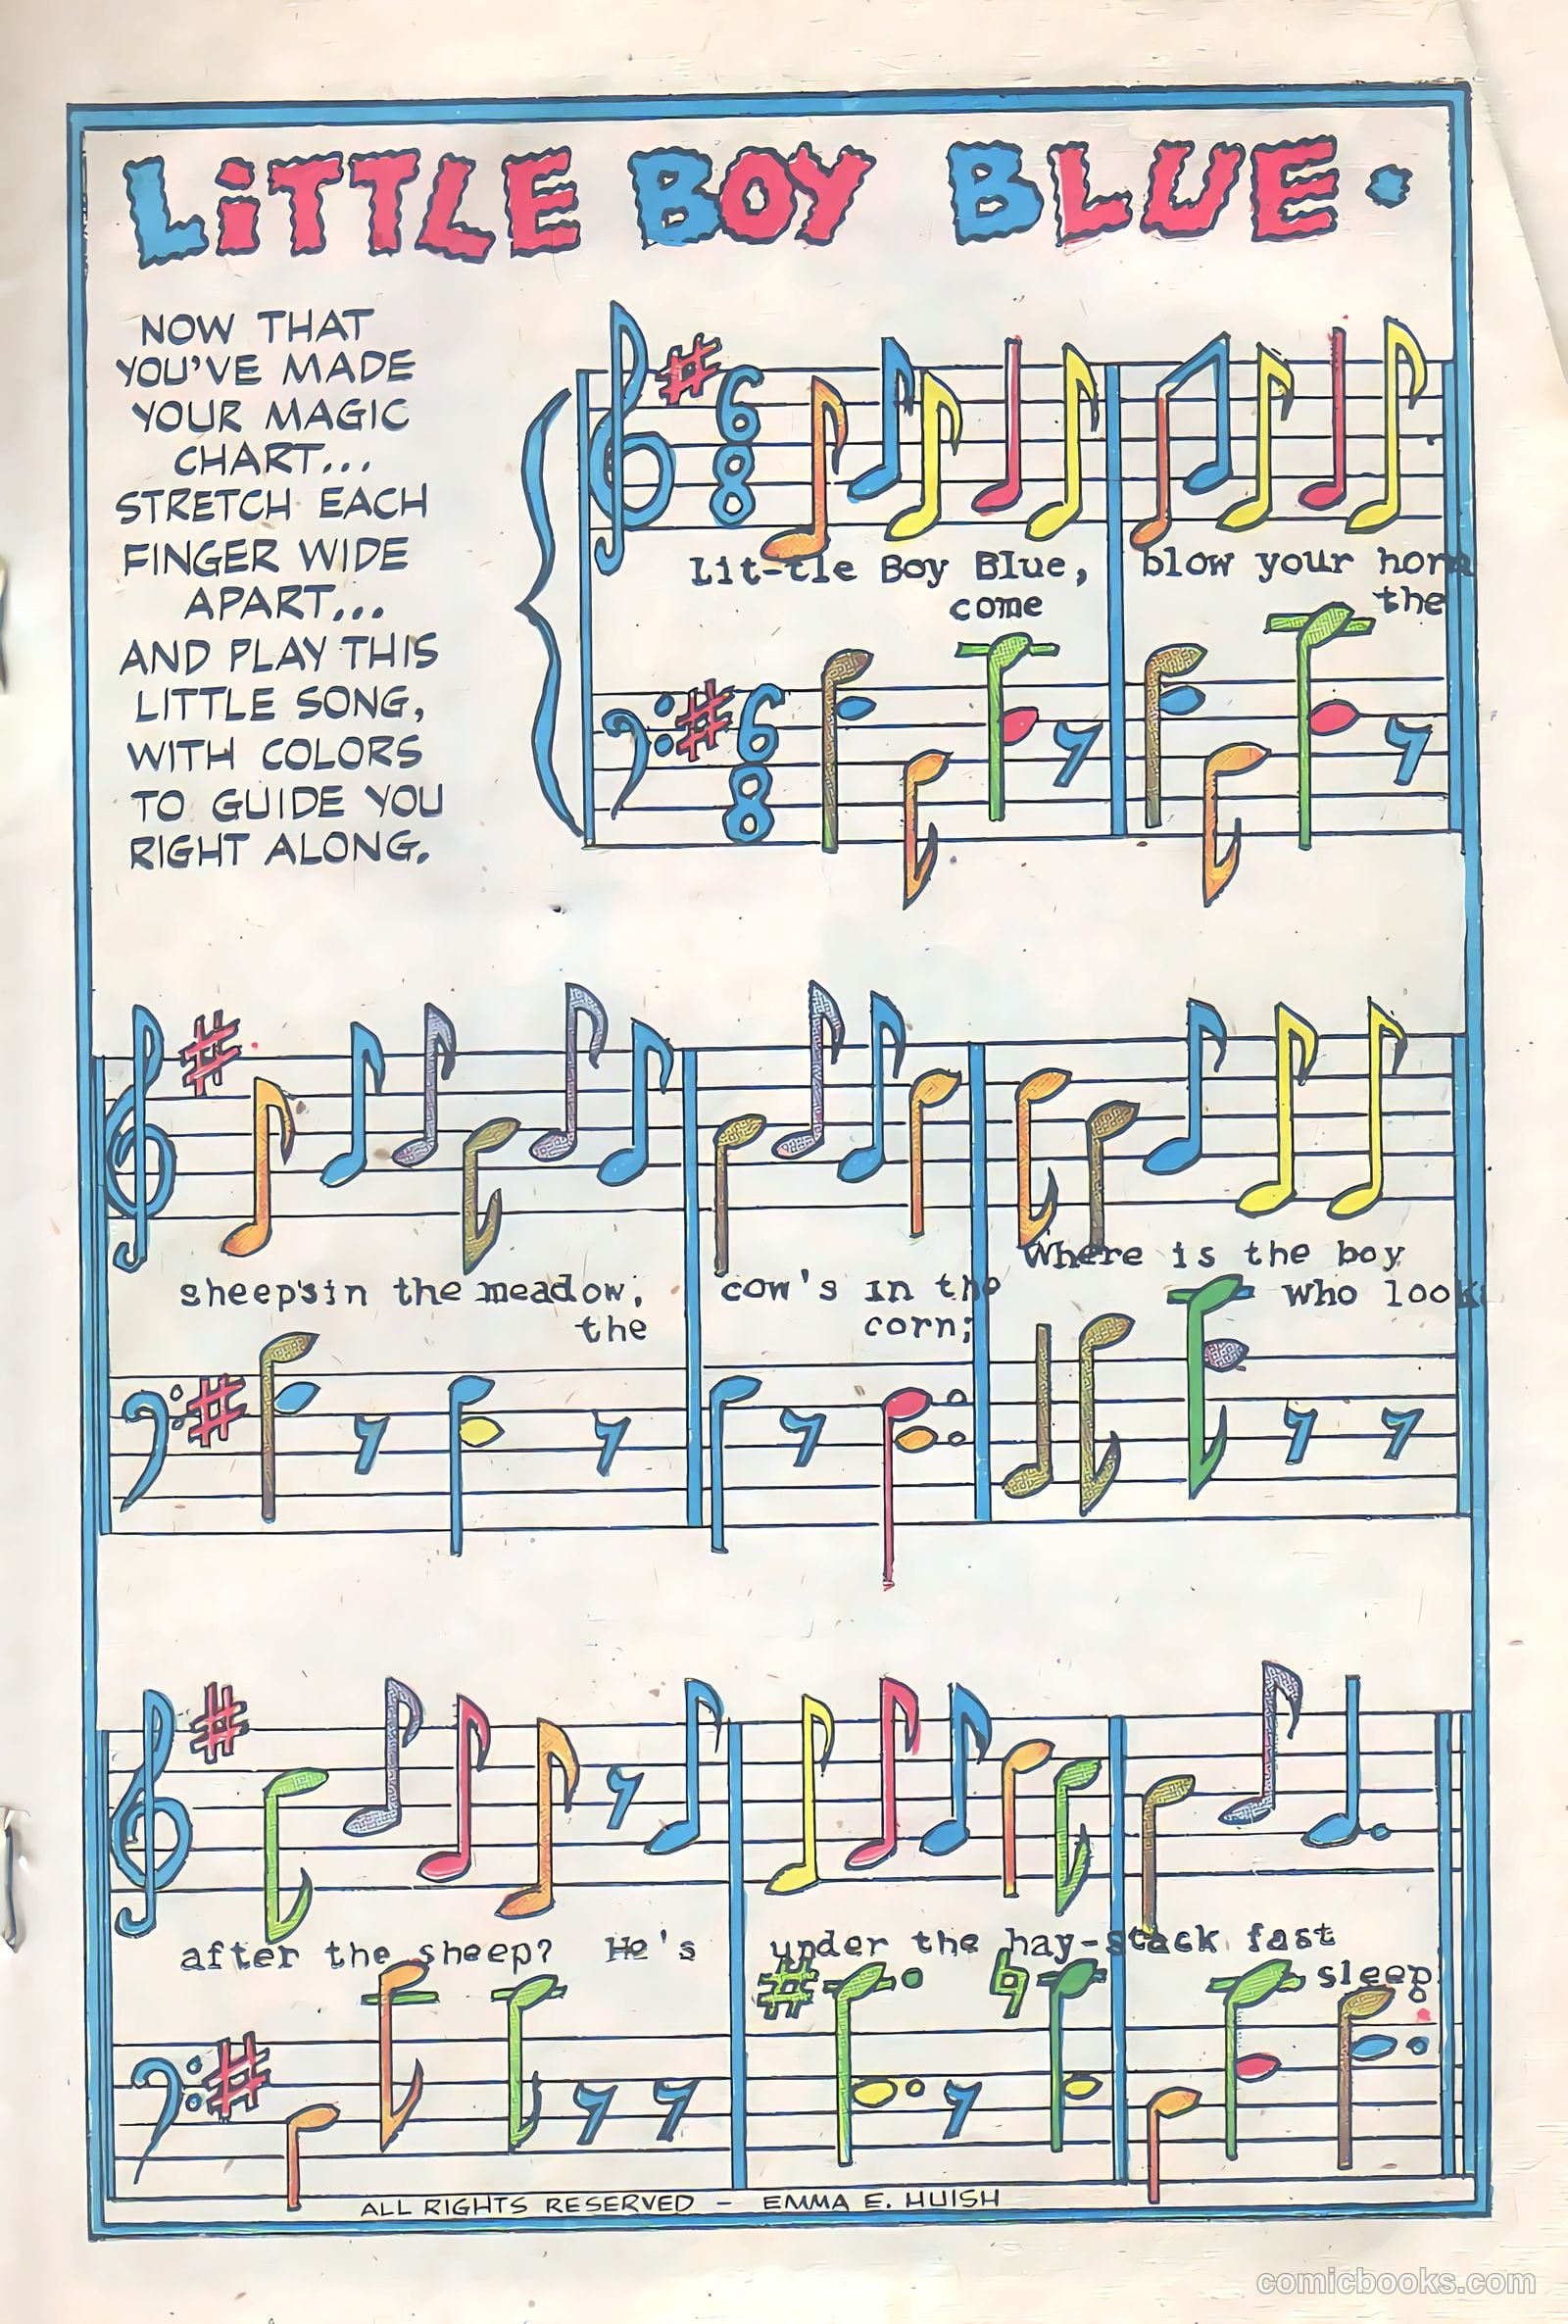 LiTTLE BOY BLUE.
NOW THAT
YOU'VE MADE
YOUR MAGIC
CHART...
STRETCH EACH
FINGER WIDE
APART...
AND PLAY THIS
LITTLE SONG,
WITH COLORS
TO GUIDE YOU
RIGHT ALONG.
6
8
Lit-tle Boy Blue, blow your horn
come the
6
8
sheep'sin the meadow, cow's in the Where is the boy
the corn; who looks
after the sheep? He's under the hay-stack fast
sleep
ALL RIGHTS RESERVED - EMMA E. HUISH
comicbooks.com